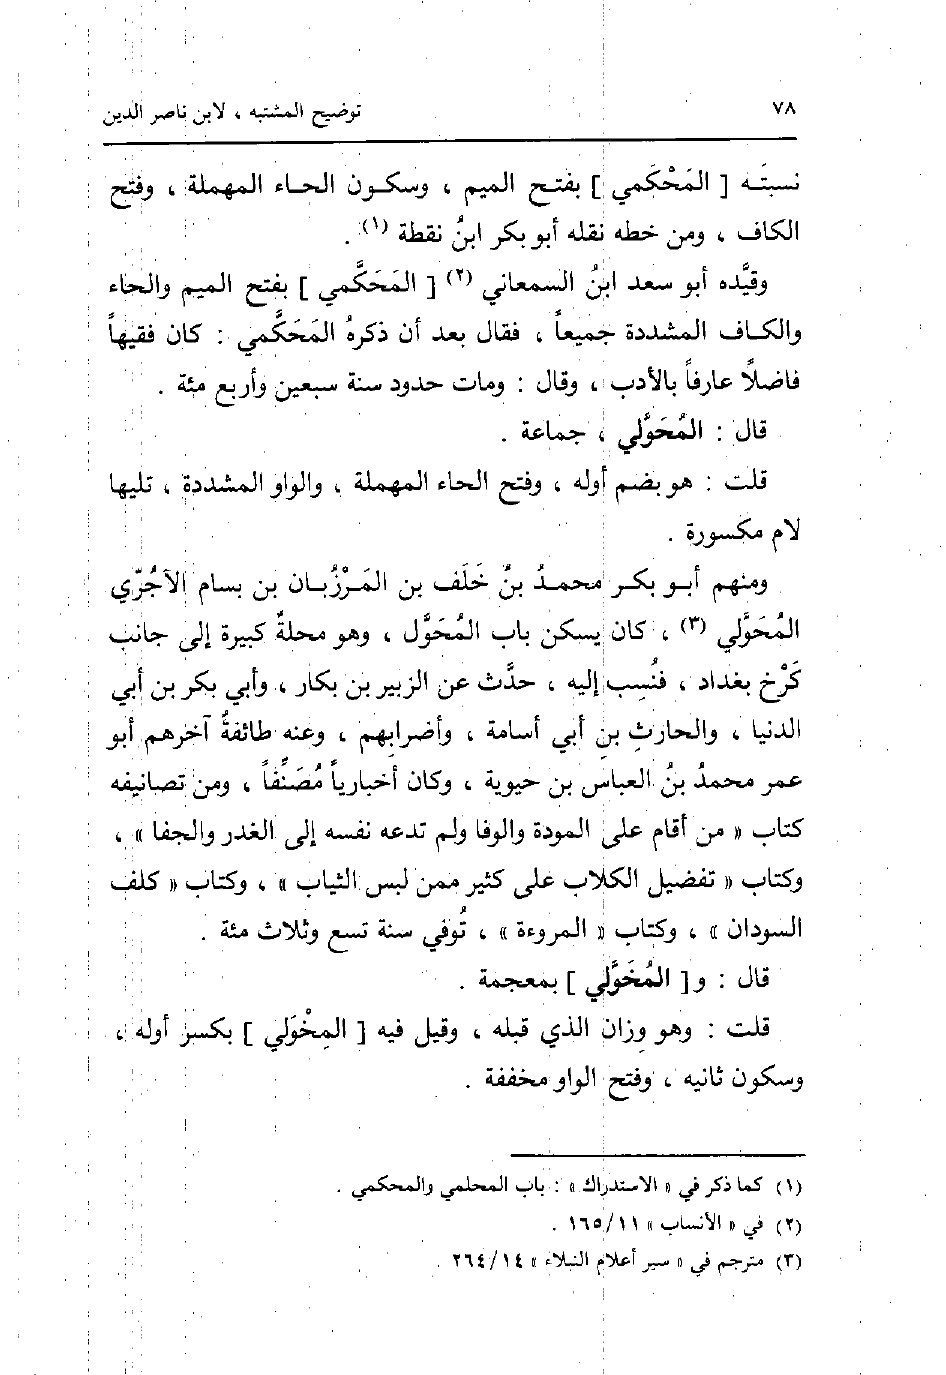 ٧٨
توضيح المشتبه ، لابن ناصر الدين
نسبتَـه [ المَحْكَمي ] بفتـح الميم ، وسكـون الحـاء المهملة ، وفتح
الكاف ، ومن خطه نقله أبو بكر ابنُ نقطة (١) .
وقيَّده أبو سعد ابنُ السمعاني (٢) [ المَحَكَّمي ] بفتح الميم والحاء
والكـاف المشددة جميعاً ، فقال بعد أن ذكرهُ المَحَكَّمي : كان فقيهاً
فاضلاً عارفاً بالأدب ، وقال : ومات حدود سنة سبعين وأربع مئة .
قال : المُحَوَّلي ، جماعة .
قلت : هو بضم أوله ، وفتح الحاء المهملة ، والواو المشددة ، تليها
لام مكسورة .
ومنهم أبـو بكـر محمـدُ بنُ خَلَف بن المَـرْزُبـان بن بسام الآجُرّي
المُحَوَّلي (٣) ، كان يسكن باب المُحَوَّل ، وهو محلةٌ كبيرة إلى جانب
كَرْخ بغداد ، فنُسِب إليه ، حدَّث عن الزبير بن بكار ، وأبي بكر بن أبي
الدنيا ، والحارثِ بنِ أبي أسامة ، وأضرابِهم ، وعنه طائفةٌ آخرهم أبو
عمر محمدُ بنُ العباس بن حيوية ، وكان أخبارياً مُصَنِّفاً ، ومن تصانيفه
كتاب « من أقام على المودة والوفا ولم تدعه نفسه إلى الغدر والجفا » ،
وكتاب « تفضيل الكلاب على كثير ممن لبس الثياب » ، وكتاب « كلف
السودان » ، وكتاب « المروءة » ، تُوفي سنة تسع وثلاث مئة .
قال : و [ المُخَوَّلي ] بمعجمة .
قلت : وهو وِزان الذي قبله ، وقيل فيه [ المِخْوَلي ] بكسر أوله ،
وسكون ثانيه ، وفتح الواو مخففة .
(١) كما ذكر في « الاستدراك » : باب المحلمي والمحكمي .
(٢) في « الأنساب » ١٦٥/١١ .
(٣) مترجم في « سير أعلام النبلاء » ٢٦٤/١٤ .